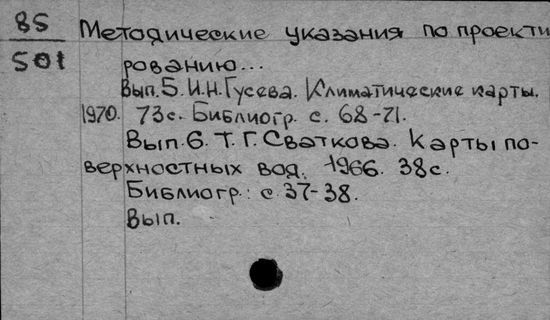 85
501
Методические указания по проекти
рованию...
Вып. 5. И.Н. Гусева. Климатические карты.
1970. 73с. Библиогр. с. 68-71.
Вып. 6. Т. Г. Сваткова. Карты по-
верхностных вод. 1966. 38с.
Библиогр.: с. 37-38.
Вып.